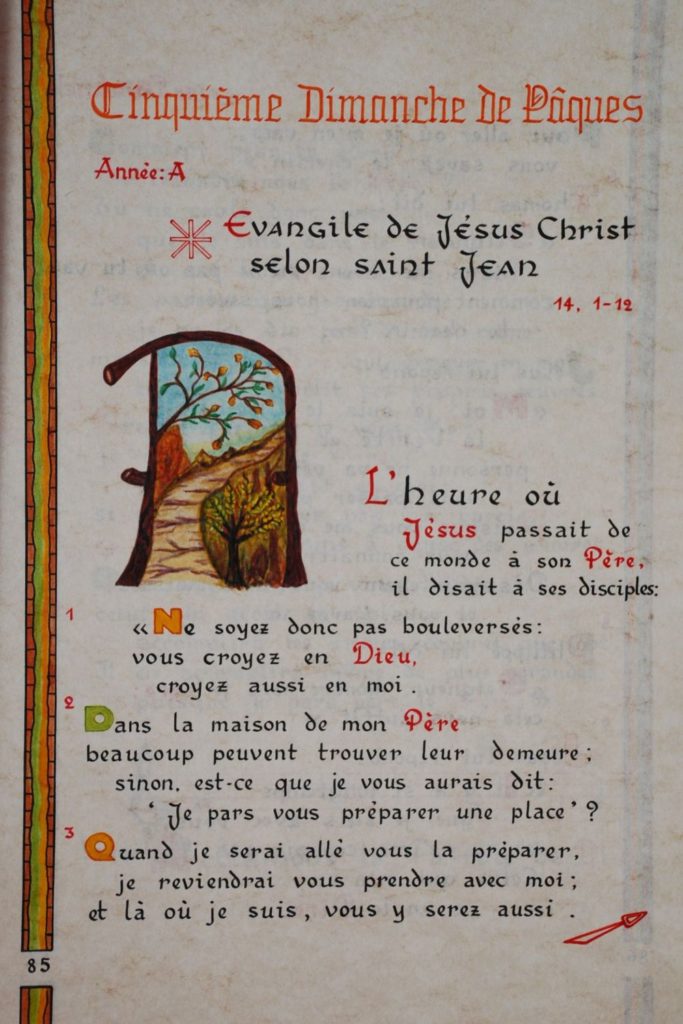 Cinquième Dimanche de Pâques
Année: A
Evangile de Jésus Christ
selon saint Jean
14, 1-12
A
L'heure où
Jésus passait de
ce monde à son Père,
il disait à ses disciples:
1
«Ne soyez donc pas bouleversés:
vous croyez en Dieu,
croyez aussi en moi.
2
Dans la maison de mon Père
beaucoup peuvent trouver leur demeure;
sinon, est-ce que je vous aurais dit:
'Je pars vous préparer une place'?
3
Quand je serai allé vous la préparer,
je reviendrai vous prendre avec moi;
et là où je suis, vous y serez aussi.
85